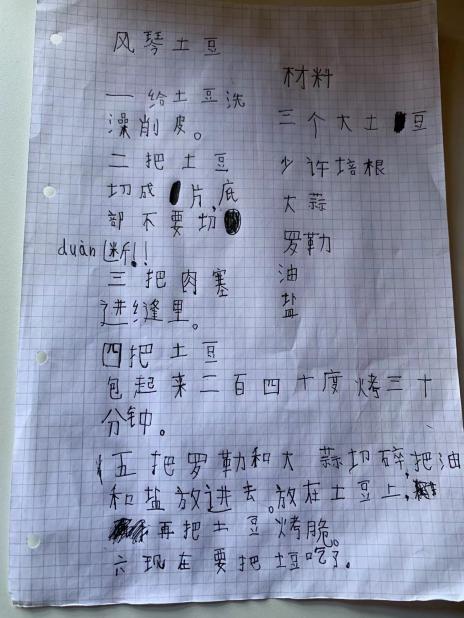 风琴土豆
一给土豆洗
澡削皮。
二把土豆
切成片,底
部不要切
duàn断!!
三把肉塞
进缝里。
四把土豆
包起来二百四十度烤三十
分钟。
五把罗勒和大蒜切碎,把油
和盐放进去。放在土豆上,
再把土豆烤脆。
六现在要把土豆吃了。
材料
三个大土豆
少许培根
大蒜
罗勒
油
盐